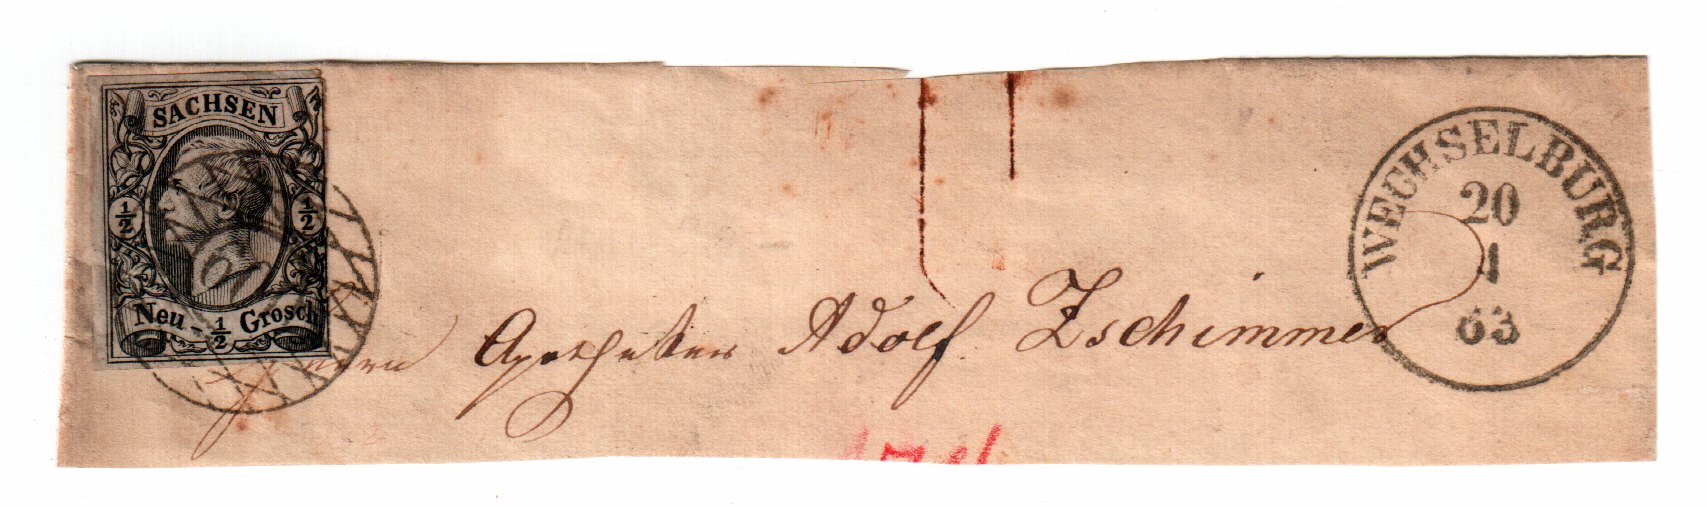 SACHSEN
½ ½
Neu - ½ Grosch
WECHSELBURG
20
1
63
Herrn Apotheker Adolf Zschimmer